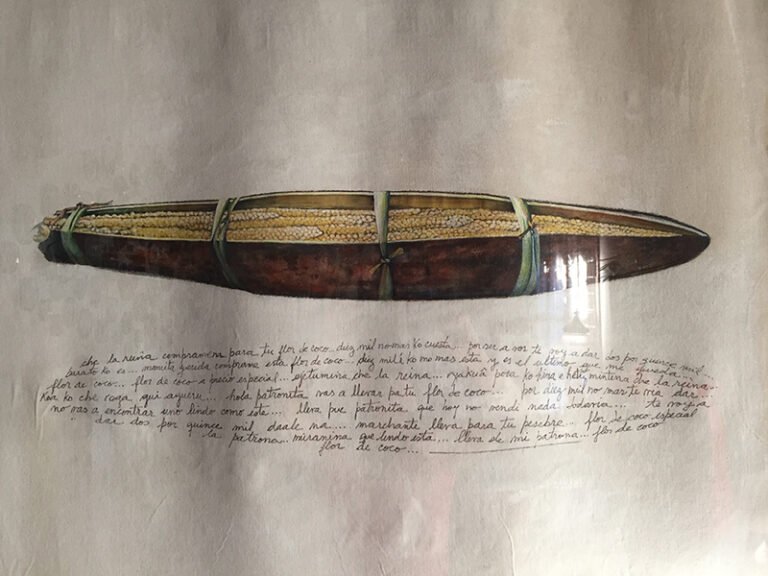 che la reina compramena para tu flor de coco... diez mil nomas ko cuesta... por ser a vos te voy a dar dos por quince mil..
barato ko es... mamita querida comprame esta flor de coco... diez mil ko no mas esta y es el ultimo que me queda...
flor de coco... flor de coco a precio especial... ejetumina che la reina... ko pora ko la reina...
Koa ko che roga gui arquero... hola patronita vas a llevar pa tu flor de coco... por diez mil no mar te voa dar...
no vas a encontrar uno lindo como este... lleva pue patronita que hoy no vende nada todavia... te voy a
dar dos por quince mil dale na.... marchante lleva para tu pesebre... flor de coco especial
la patrona... miramina que lindo esta... lleva de mi patrona... flor de coco
flor de coco...